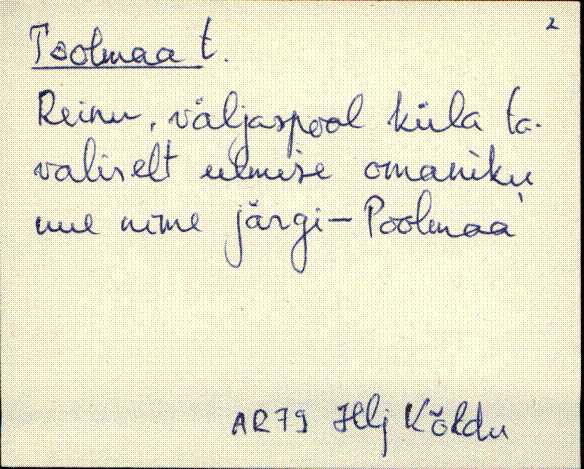 2
Poolmaa t.
Reinu, väljaspool küla ta-
valiselt eelmise omaniku
uue nime järgi – Poolmaa
AR79 Hlj Kõldu